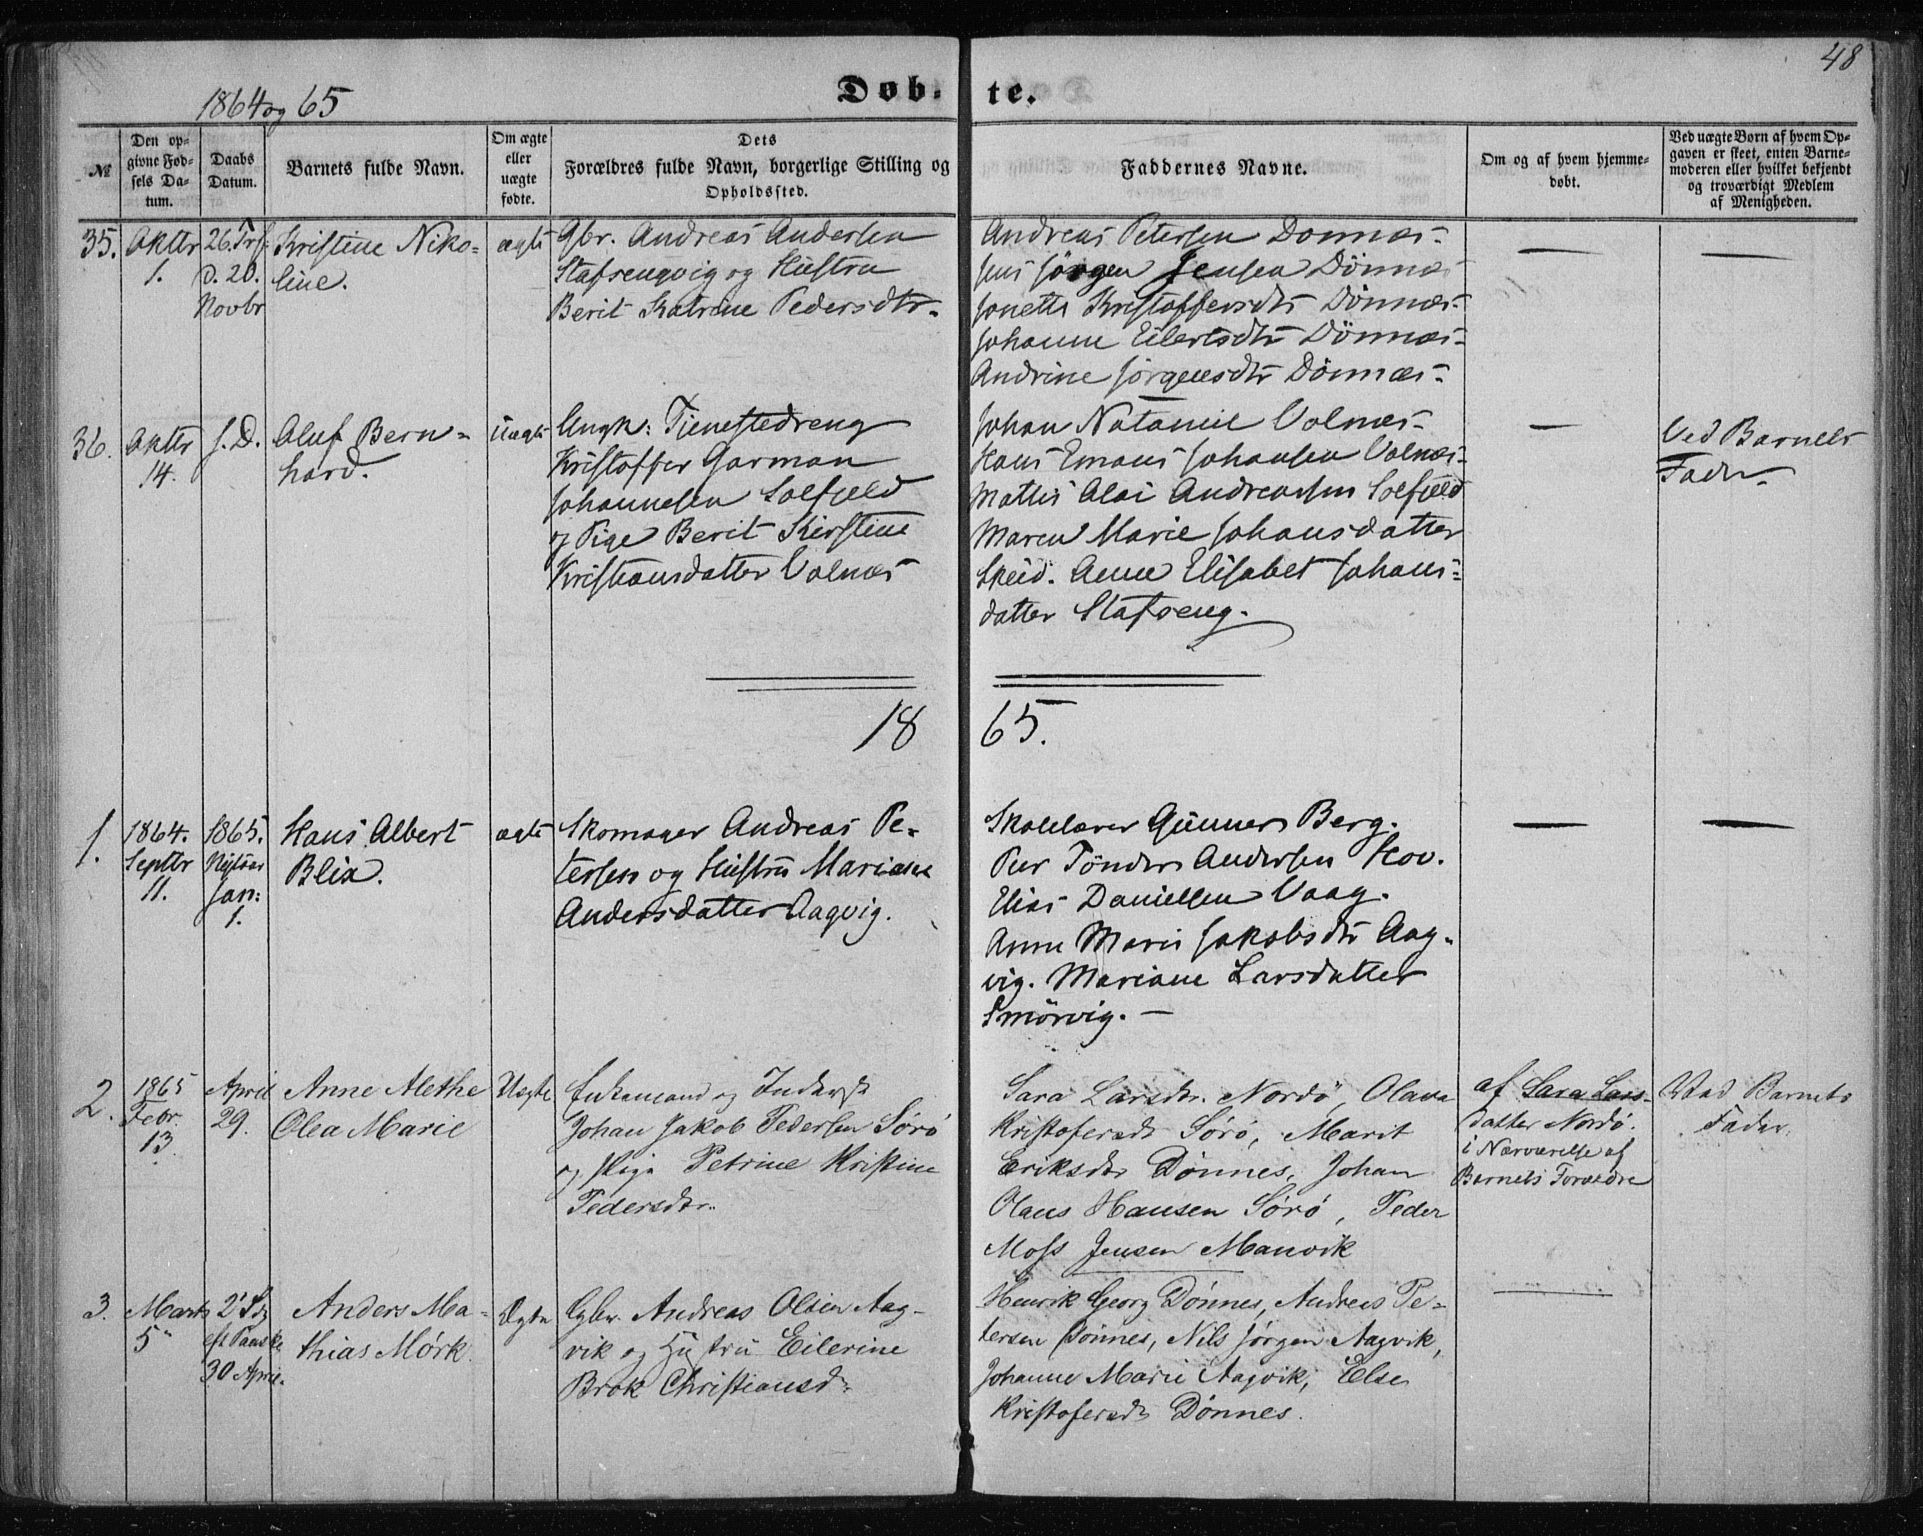 48
1864 og 65
Døb- te.
№
Den op-
givne Fød-
sels Da-
tum.
Daabs
Datum.
Barnets fulde Navn.
Om ægte
eller
uægte
fødte.
Dets
Forældres fulde Navn, borgerlige Stilling og
Opholdssted.
Faddernes Navne.
Om og af hvem hjemme-
døbt.
Ved uægte Børn af hvem Op-
gaven er skeet, enten Barne-
moderen eller hvilket bekjendt
og troværdigt Medlem
af Menigheden.
35.
Oktbr
1.
26. Trf
d. 20.
Novbr
Kristine Niko-
line.
ægte
Gbr. Andreas Andersen
Stafsengvig og Hustru
Berit Katrine Pedersdtr.
Andreas Petersen Dønnæs.
Jens Jørgen Jensen Dönnæs
Jonette Kristoffersdtr Dönnæs.
Johanne Eilertsdtr Dönnæs.
Andrine Jörgensdtr Dönnæs.
—
—
36.
Oktbr
14.
s. D.
Oluf Bern-
hard.
Uægte
Ungk: Tjenestedreng
Kristoffer Garman
Johannesen Solfjeld
og Pige Berit Kirstine
Kristiansdatter Volnæs
Johan Nataniel Volnæs.
Hans Emans Johansen Volnæs.
Mattis Aloi Andreassen Solfjeld
Maren Marie Johansdatter
Skeid. Anne Elisabet Johans-
datter Stafseng.
—
Ved Barnets
Fader.
18 65.
1.
1864.
Septbr
11.
1865.
Nytaar
Jan:
1.
Hans Albert
Blix.
ægte
Skomager Andreas Pe-
tersen og Hustru Mariane
Andersdatter Aagvig.
Skolelærer Gunner Berg.
Peer Tönder Andersen Hov.
Elias Daniellsen Vaag.
Anne Marie Jakobsdtr Aag-
vig. Mariane Larsdatter
Smörvig. —
—
—
2.
1865
Febr.
13.
April
29.
Anne Alethe
Olea Marie
Uegte
Enkemand og Inderst
Johan Jakob Pedersen Sørø
og Pige Petrine Kristine
Pedersdtr.
Sara Larsdtr. Nordö, Olava
Kristofersdtr Sørø, Marit
Eriksdtr Dønnes, Johan
Olaus Hansen Sørø, Peder
Moss Jensen Manvik
af Sara Lars-
datter Nordö.
i Nærværelse af
Barnets Forældre
Ved Barnets
Fader.
3.
Marts
5
2' Sdg
eft Paaske
30 April.
Anders Ma-
thias Mørk.
Ægte
Gbr. Andreas Olsen Aag-
vik og Hustru Eilerine
Brok Christiansd.
Henrik Georg Dønnes, Andreas Pe-
tersen Dønnes, Nils Jørgen Aagvik,
Johanne Marie Aagvik, Else
Kristofersdtr Dønnes.
—